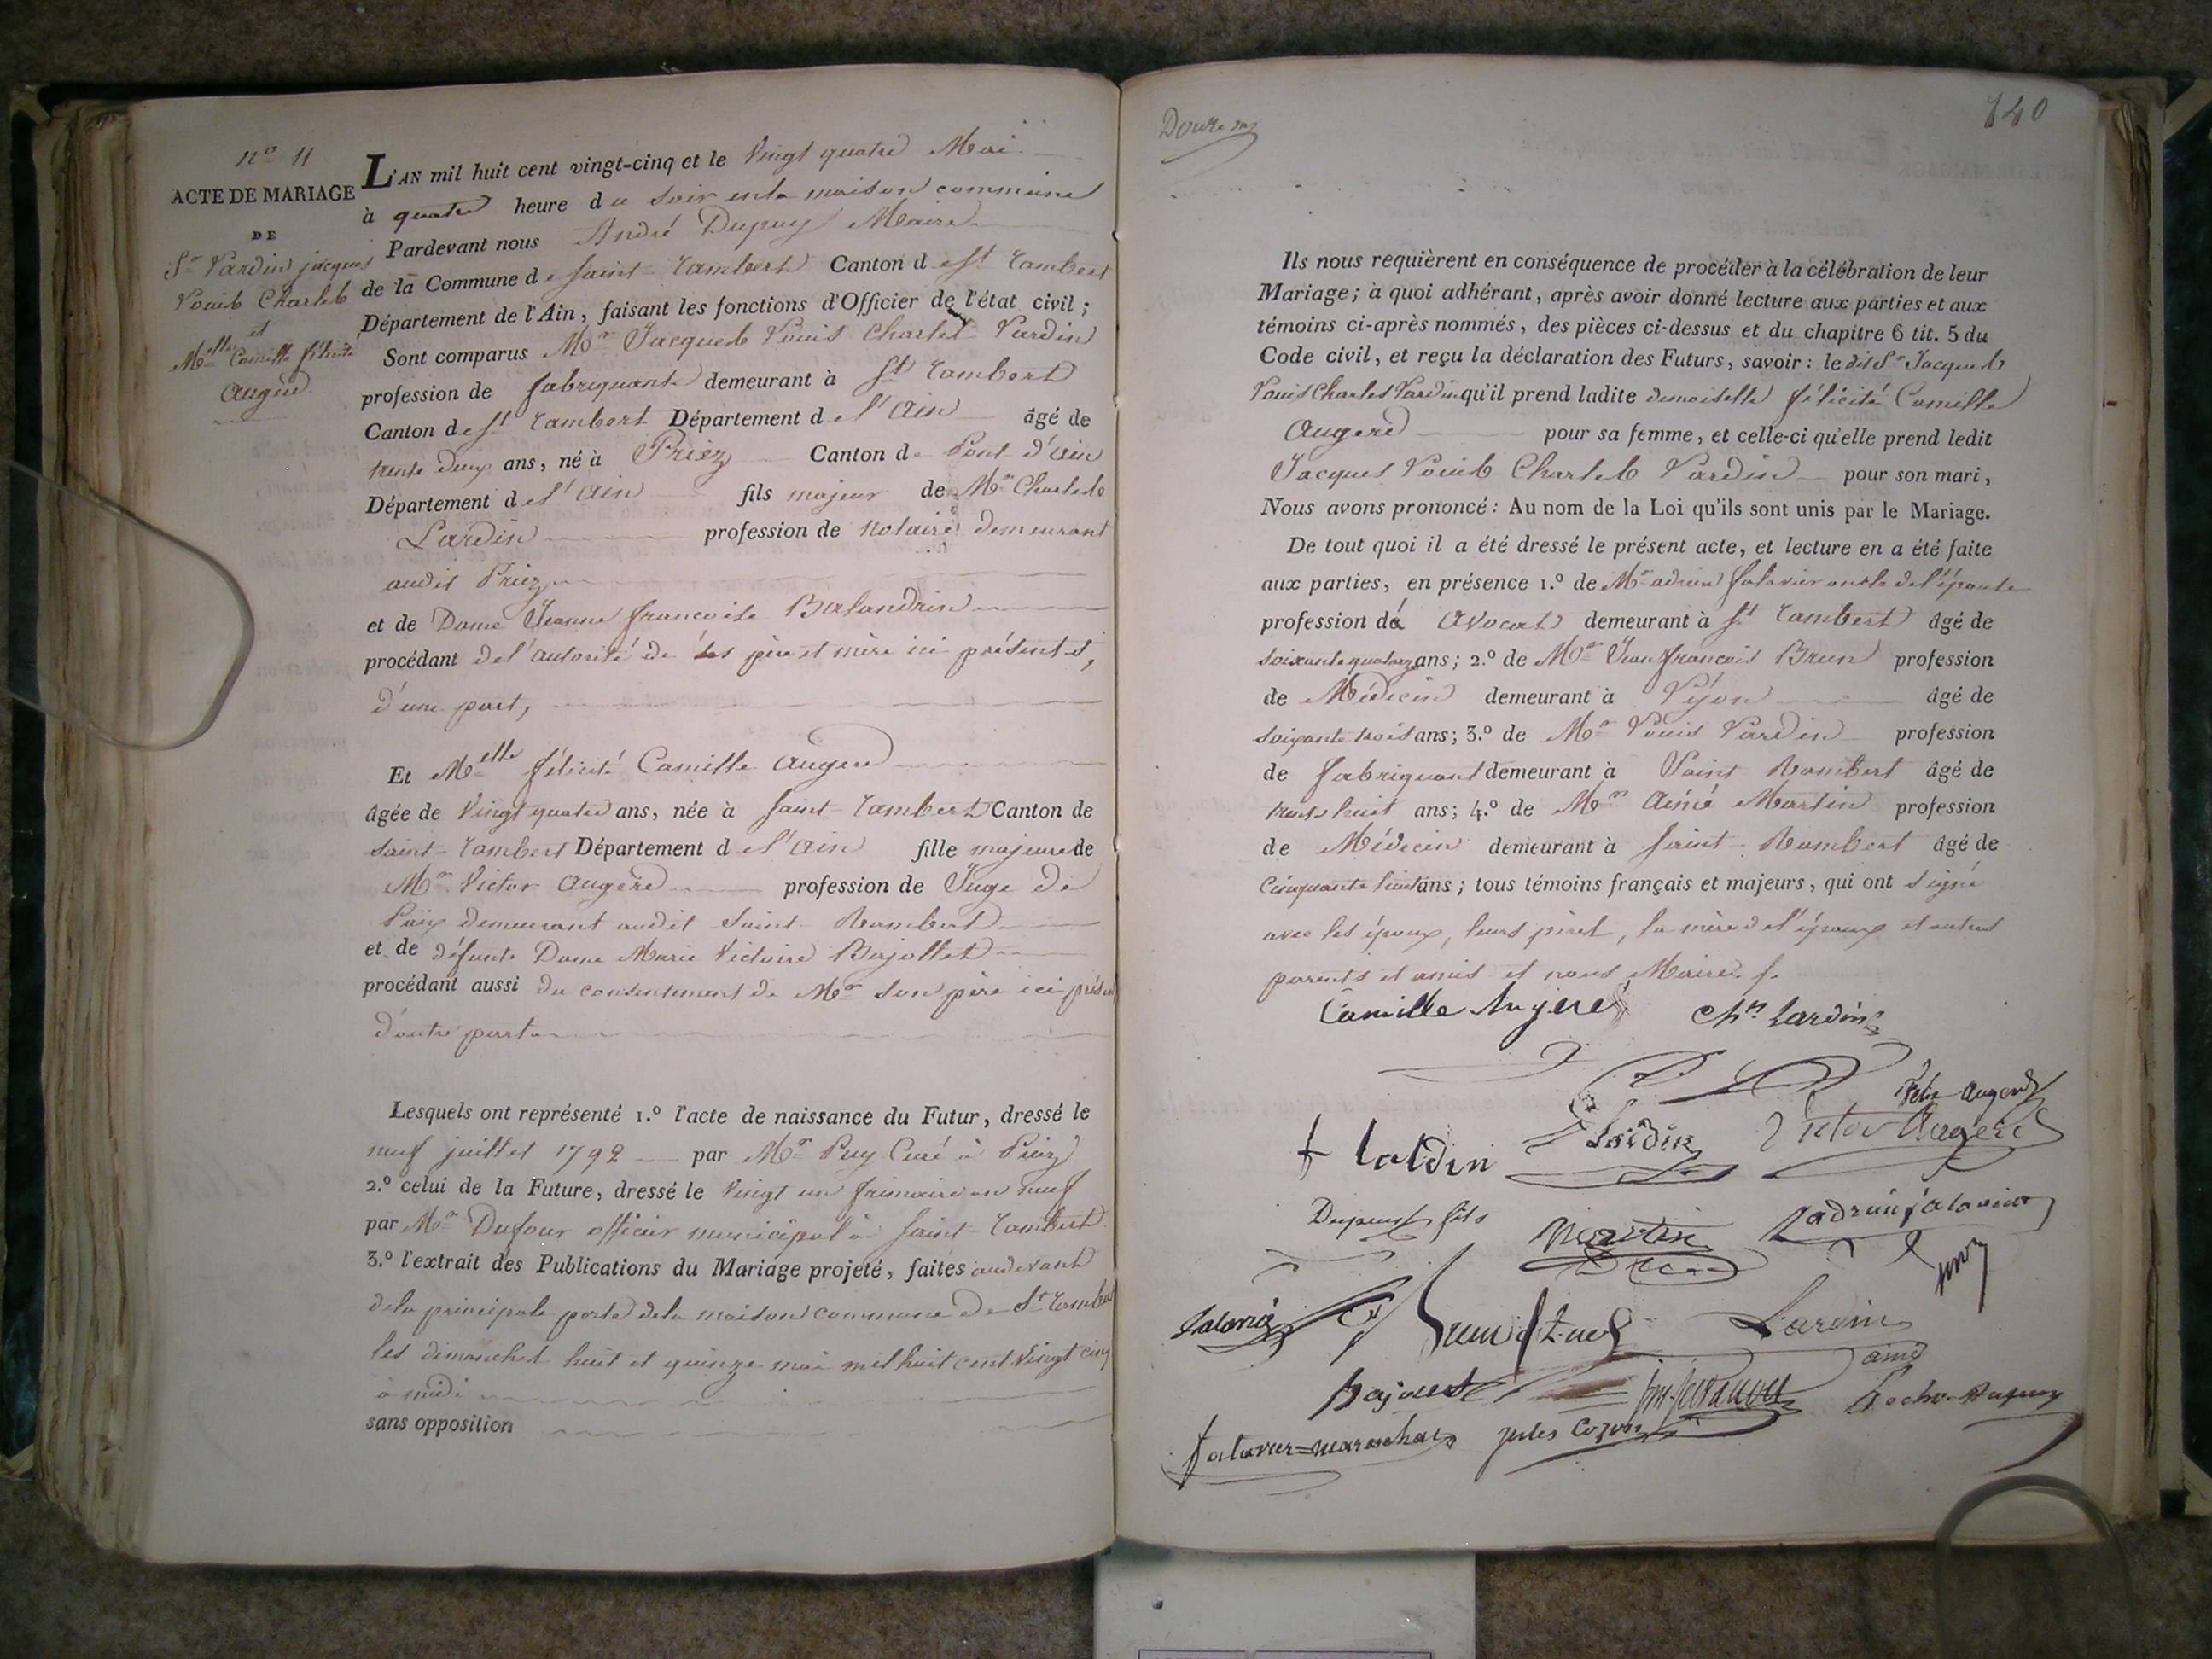 n.o 11
ACTE DE MARIAGE
DE
Sr Lardin jacques
Louis Charles
et
Melle Camille félicité
Augerd
L'AN mil huit cent vingt-cinq et le Vingt quatre Mai
à quatre heure du soir en la maison commune
Pardevant nous André Dupuy Maire
de la Commune de Saint-rambert Canton de St rambert
Département de l'Ain, faisant les fonctions d'Officier de l'état civil ;
Sont comparus Mr Jacques Louis Charles Lardin
profession de fabriquant demeurant à St rambert
Canton de St rambert Département de l'Ain âgé de
trente deux ans, né à Priez Canton de Pont d'ain
Département de l'Ain fils majeur de Mr Charles
Lardin profession de notaire demeurant
audit Priez
et de Dame Jeanne francoise Balandrin
procédant de l'autorité de ses père et mère ici présents,
d'une part,
Et Melle félicité Camille Augerd
âgée de Vingt quatre ans, née à Saint-rambert Canton de
Saint-rambert Département de l'Ain fille majeure de
Mr Victor Augerd profession de Juge de
Paix demeurant audit Saint-Rambert
et de défunte Dame Marie Victoire Bajollet
procédant aussi du consentement de Mr son père ici présent
d'autre part
Lesquels ont représenté 1.º l'acte de naissance du Futur, dressé le
neuf juillet 1792 par Mr Puy Curé à Priez
2.º celui de la Future, dressé le Vingt un frimaire an neuf
par Mr Dufour officier municipal à Saint-rambert
3.º l'extrait des Publications du Mariage projeté, faites audevant
de la principale porte de la maison commune de St rambert
les dimanches huit et quinze mai mil huit cent vingt cinq
à midi
sans opposition
140
Ils nous requièrent en conséquence de procéder à la célébration de leur
Mariage ; à quoi adhérant, après avoir donné lecture aux parties et aux
témoins ci-après nommés, des pièces ci-dessus et du chapitre 6 tit. 5 du
Code civil, et reçu la déclaration des Futurs, savoir : le dit Sr Jacques
Louis Charles Lardin qu'il prend ladite demoiselle félicité Camille
Augerd pour sa femme, et celle-ci qu'elle prend ledit
Jacques Louis Charles Lardin pour son mari,
Nous avons prononcé : Au nom de la Loi qu'ils sont unis par le Mariage.
De tout quoi il a été dressé le présent acte, et lecture en a été faite
aux parties, en présence 1.º de Mr adrien falavier oncle de l'épouse
profession dé Avocat demeurant à St rambert âgé de
soixante quatorze ans ; 2.º de Mr Jean françois Brun profession
de Médecin demeurant à Lÿon âgé de
soixante trois ans ; 3.º de Mr Louis Lardin profession
de fabriquant demeurant à Saint Rambert âgé de
trente huit ans ; 4.º de Mr Aimé Martin profession
de Médecin demeurant à Saint-Rambert âgé de
Cinquante huit ans ; tous témoins français et majeurs, qui ont signé
avec les époux, leurs pères, la mère de l'époux et autres
parents et amis et nous Maire
Camille Augerd Chs Lardin
felix Augerd
Lardin Victor Augerd
Dupuy fils Martin adrien falavier
Lardin
aimé
falavier=marechal jules Cozon